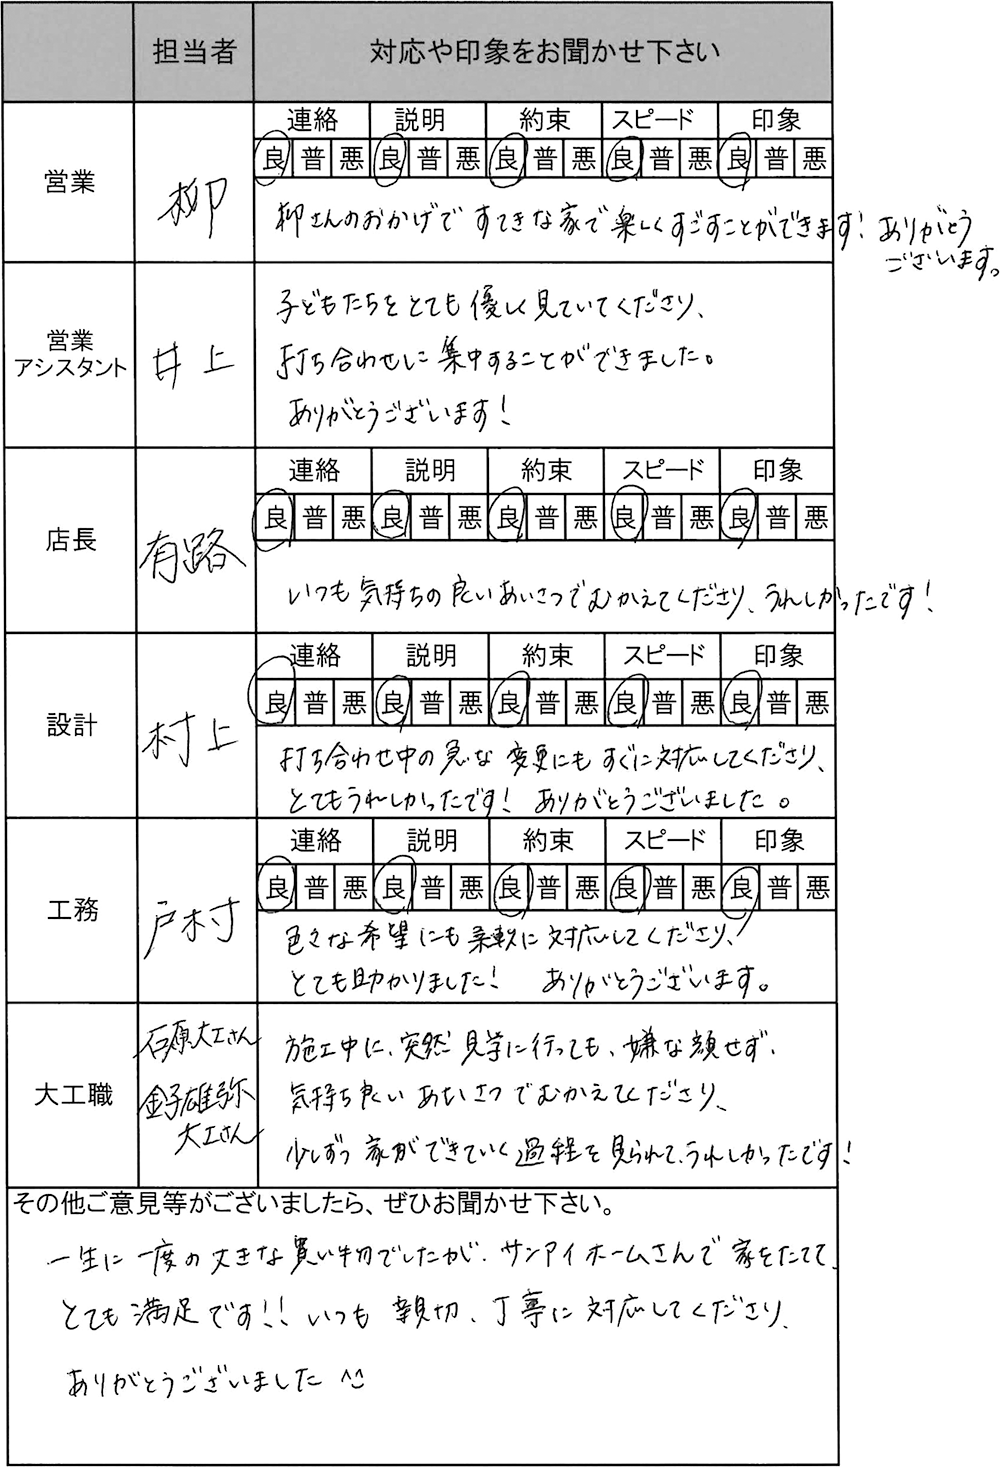 担当者 対応や印象をお聞かせ下さい
営業 柳
連絡 説明 約束 スピード 印象
良 普 悪 良 普 悪 良 普 悪 良 普 悪 良 普 悪
柳さんのおかげで すてきな家で楽しくすごすことができます! ありがとう
ございます。
営業
アシスタント
井上
子どもたちをとても優しく見ていてくださり、
打ち合わせに集中することができました。
ありがとうございます!
店長 有路
連絡 説明 約束 スピード 印象
良 普 悪 良 普 悪 良 普 悪 良 普 悪 良 普 悪
いつも気持ちの良いあいさつでむかえてくださり、うれしかったです!
設計 村上
連絡 説明 約束 スピード 印象
良 普 悪 良 普 悪 良 普 悪 良 普 悪 良 普 悪
打ち合わせ中の急な変更にもすぐに対応してくださり、
とてもうれしかったです! ありがとうございました。
工務 戸村
連絡 説明 約束 スピード 印象
良 普 悪 良 普 悪 良 普 悪 良 普 悪 良 普 悪
色々な希望にも柔軟に対応してくださり、
とても助かりました! ありがとうございます。
大工職
石原大工さん
金子雄弥
大工さん
施工中に、突然見学に行っても、嫌な顔せず、
気持ち良いあいさつでむかえてくださり、
少しずつ家ができていく過程を見られて、うれしかったです!
その他ご意見等がございましたら、ぜひお聞かせ下さい。
一生に一度の大きな買い物でしたが、サンアイホームさんで家をたてて、
とても満足です!! いつも親切、丁寧に対応してくださり、
ありがとうございました ^^